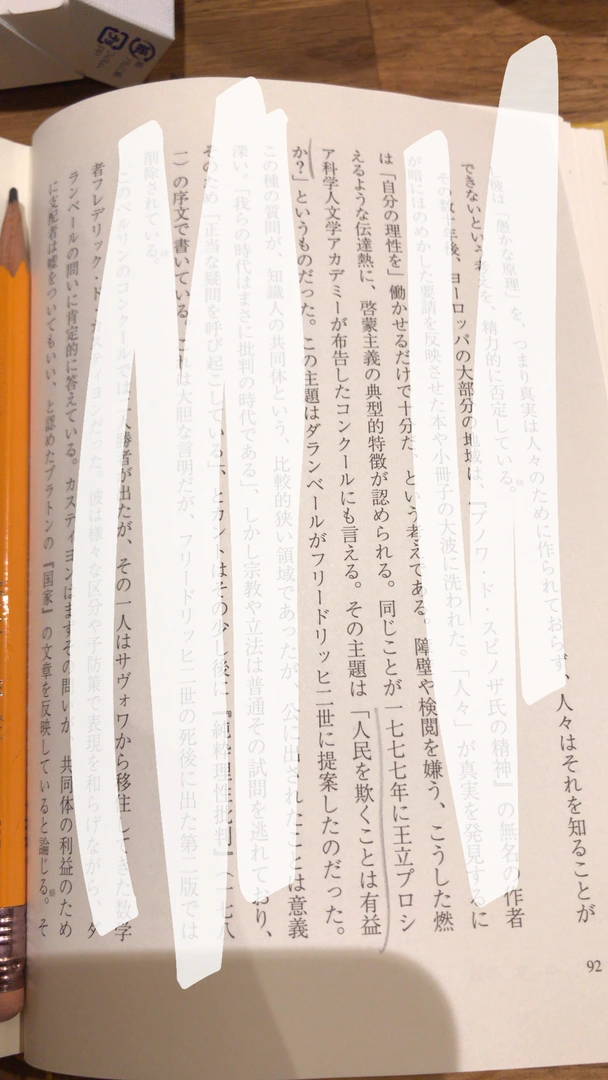 彼は「愚かな原理」を、つまり真実は人々のために作られておらず、人々はそれを知ることが
できないという考えを、精力的に否定している。
その数十年後、ヨーロッパの大部分の地域は、『ブノワ・ド・スピノザ氏の精神』の無名の作者
が暗にほのめかした要請を反映させた本や小冊子の大波に洗われた。「人々」が真実を発見するに
は「自分の理性を」働かせるだけで十分だ、という考えである。障壁や検閲を嫌う、こうした燃
えるような伝達熱に、啓蒙主義の典型的特徴が認められる。同じことが一七七七年に王立プロシ
ア科学人文学アカデミーが布告したコンクールにも言える。その主題は「人民を欺くことは有益
か?」というものだった。この主題はダランベールがフリードリッヒ二世に提案したのだった。
この種の質問が、知識人の共同体という、比較的狭い領域であったが、公に出されたことは意義
深い。「我らの時代はまさに批判の時代である」、しかし宗教や立法は普通その試問を逃れており、
そのため「正当な疑問を呼び起こしている」、とカントはその少し後に『純粋理性批判』(一七八
一)の序文で書いている。これは大胆な言明だが、フリードリッヒ二世の死後に出た第二版では
削除されている。
このベルリンのコンクールでは二人勝者が出たが、その一人はサヴォワから移住してきた数学
者フレデリック・ド・カスティヨンだった。彼は様々な区分や予防策で表現を和らげながら、ダ
ランベールの問いに肯定的に答えている。カスティヨンはまずその問いが、共同体の利益のため
に支配者は嘘をついてもいい、と認めたプラトンの『国家』の文章を反映していると論じる。そ
92